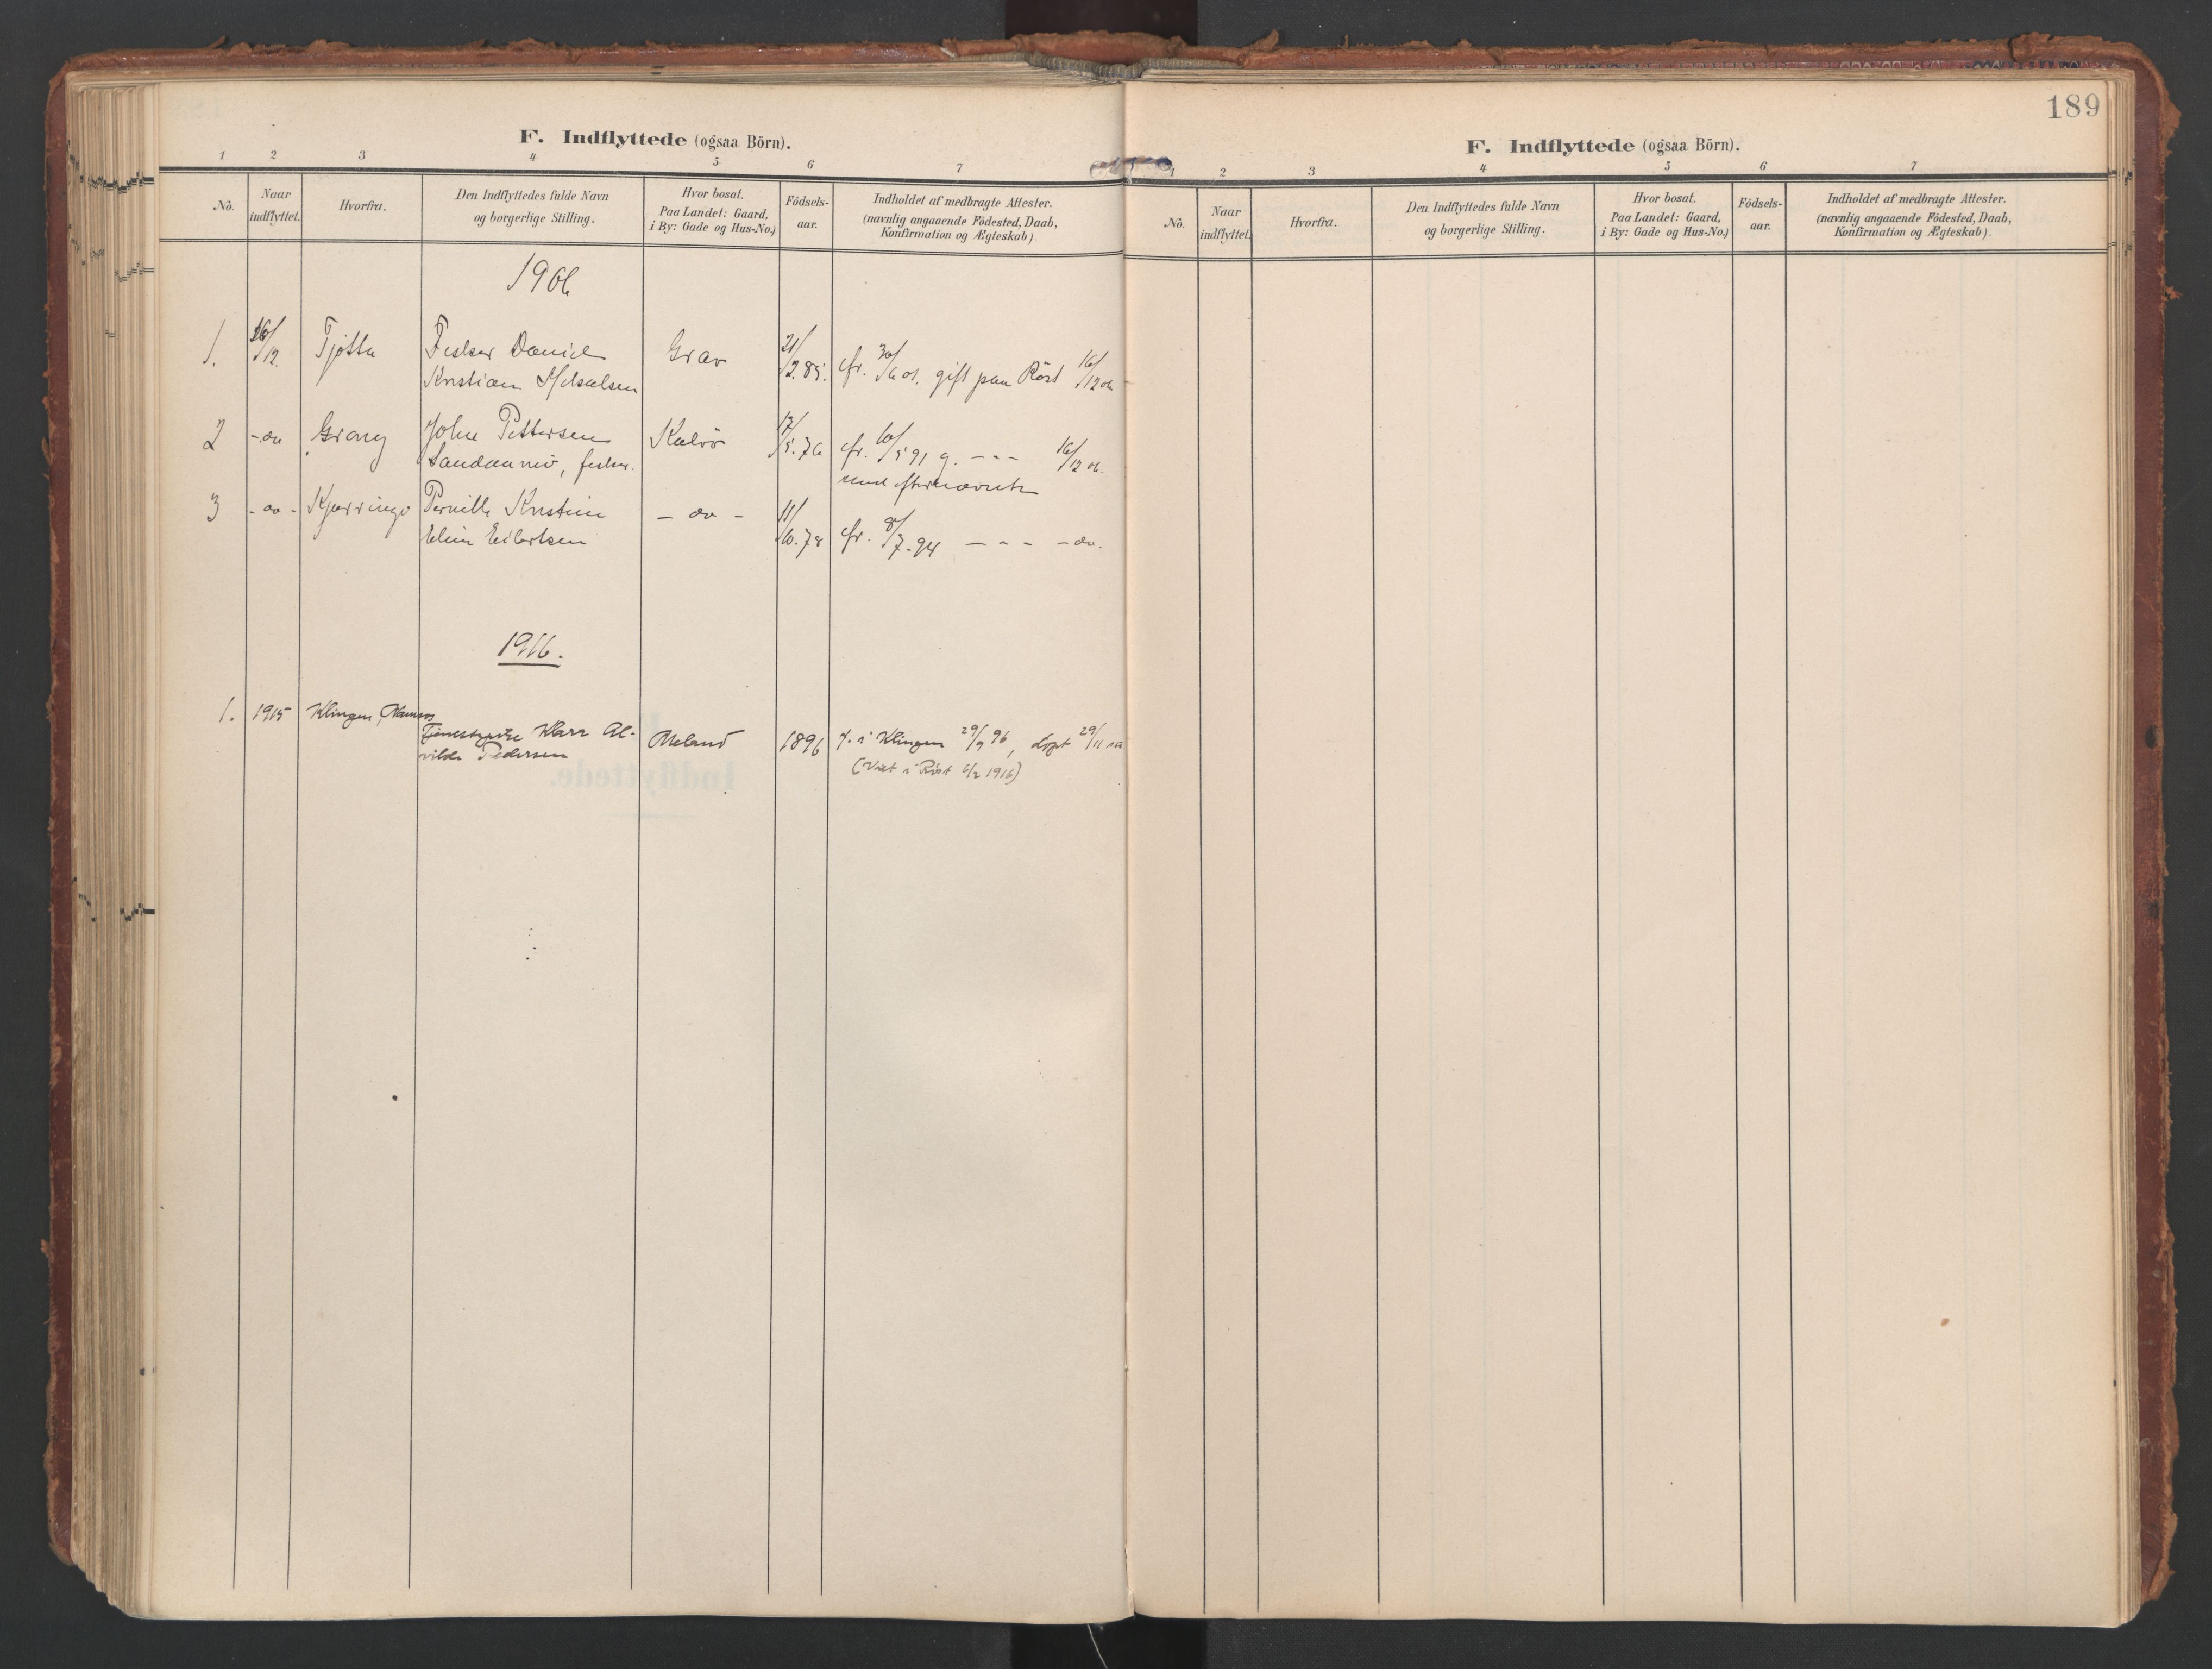 189
F. Indflyttede (ogsaa Börn).
1 2 3 4 5 6 7
No.
Naar indflyttet.
Hvorfra.
Den Indflyttedes fulde Navn
og borgerlige Stilling.
Hvor bosat.
Paa Landet: Gaard,
i By: Gade og Hus-No.)
Födsels-
aar.
Indholdet af medbragte Attester.
(navnlig angaaende Födested, Daab,
Konfirmation og Ægteskab).
1906
1. 16/12. Tjøtta Fisker Daniel Grav 21/2.85. cfr. 30/6 01. gift paa Röst 16/12 06
Kristian
2 - do Grong John Pettersen Kalvö 17/5.76 cfr. 10/5 91 g. - - - 16/12 06.
fisker.
med efternævnte
3 - do - Kjerringö Pernille Kristine - do - 11/10.78 cfr. 8/7.94 - - - - do.
Eline Eilertsen
1916.
1. 1915 Klingen, Namsos
Tjenestepike Klara Al- 1896 f. i Klingen 29/9 96, döpt 29/11 s.a
vilde Pedersen (Viet i Röst 6/2 1916)
F. Indflyttede (ogsaa Börn).
1 2 3 4 5 6 7
No.
Naar
indflyttet.
Hvorfra.
Den Indflyttedes fulde Navn
og borgerlige Stilling.
Hvor bosat.
Paa Landet: Gaard,
i By: Gade og Hus-No.)
Födsels-
aar.
Indholdet af medbragte Attester.
(navnlig angaaende Födested, Daab,
Konfirmation og Ægteskab).